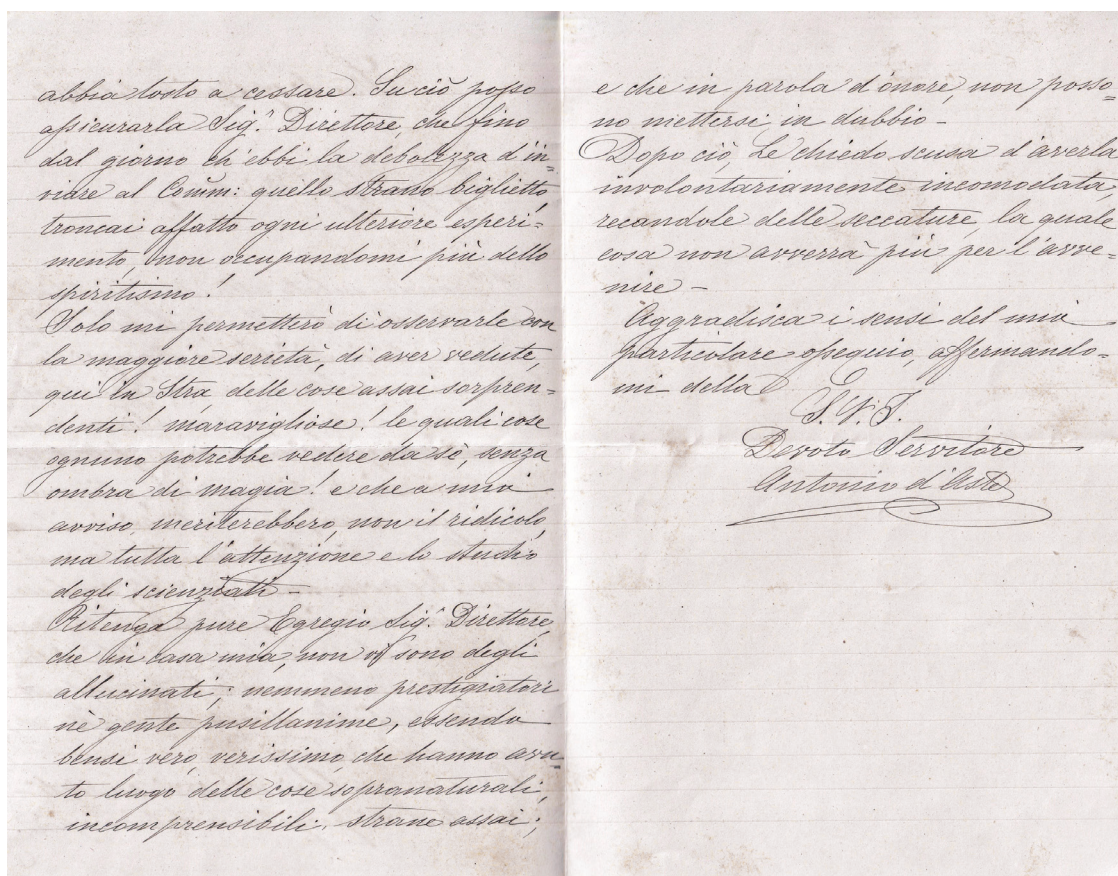 abbia tosto a cessare. Su ciò posso
assicurarla Sig.r Direttore, che fino
dal giorno ch'ebbi la debolezza d'in=
viare al Comm: quello strano biglietto,
troncai affatto ogni ulteriore esperi=
mento, non occupandomi più dello
spiritismo!
Solo mi permetterò di osservarle con
la maggiore serietà, di aver vedute,
qui in Stra, delle cose assai sorpren=
denti! maravigliose! le quali cose
ognuno potrebbe vedere da sè, senza
ombra di magia! e che a mio
avviso, meriterebbero, non il ridicolo,
ma tutta l'attenzione e lo studio
degli scienziati –
Ritenga pure Egregio Sig.r Direttore,
che in casa mia, non vi sono degli
allucinati; nemmeno prestigiatori
nè gente pusillanime, essendo
bensì vero, verissimo, che hanno avu=
to luogo delle cose sopranaturali,
incomprensibili, strane assai;
e che in parola d'onore, non posso=
no mettersi in dubbio –
Dopo ciò, Le chiedo scusa d'averla
involontariamente incomodata,
recandole delle seccature, la quale
cosa non avverrà più per l'avve=
nire –
Aggradisca i sensi del mio
particolare ossequio, affermando=
mi della
S. V. I.
Devoto Servitore
Antonio d'Aste